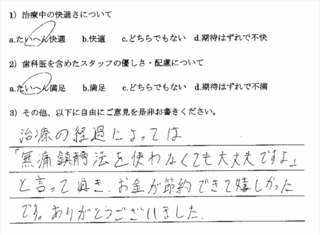 1）治療中の快適さについて
a.たいへん快適 b.快適 c.どちらでもない d.期待はずれで不快
2）歯科医を含めたスタッフの優しさ・配慮について
a.たいへん満足 b.満足 c.どちらでもない d.期待はずれで不快
3）その他、以下に自由にご意見を是非お書きください。
治療の経過によっては
「無痛鎮静法を使わなくても大丈夫ですよ」
と言って頂き、お金が節約できて嬉しかった
です。ありがとうございました。